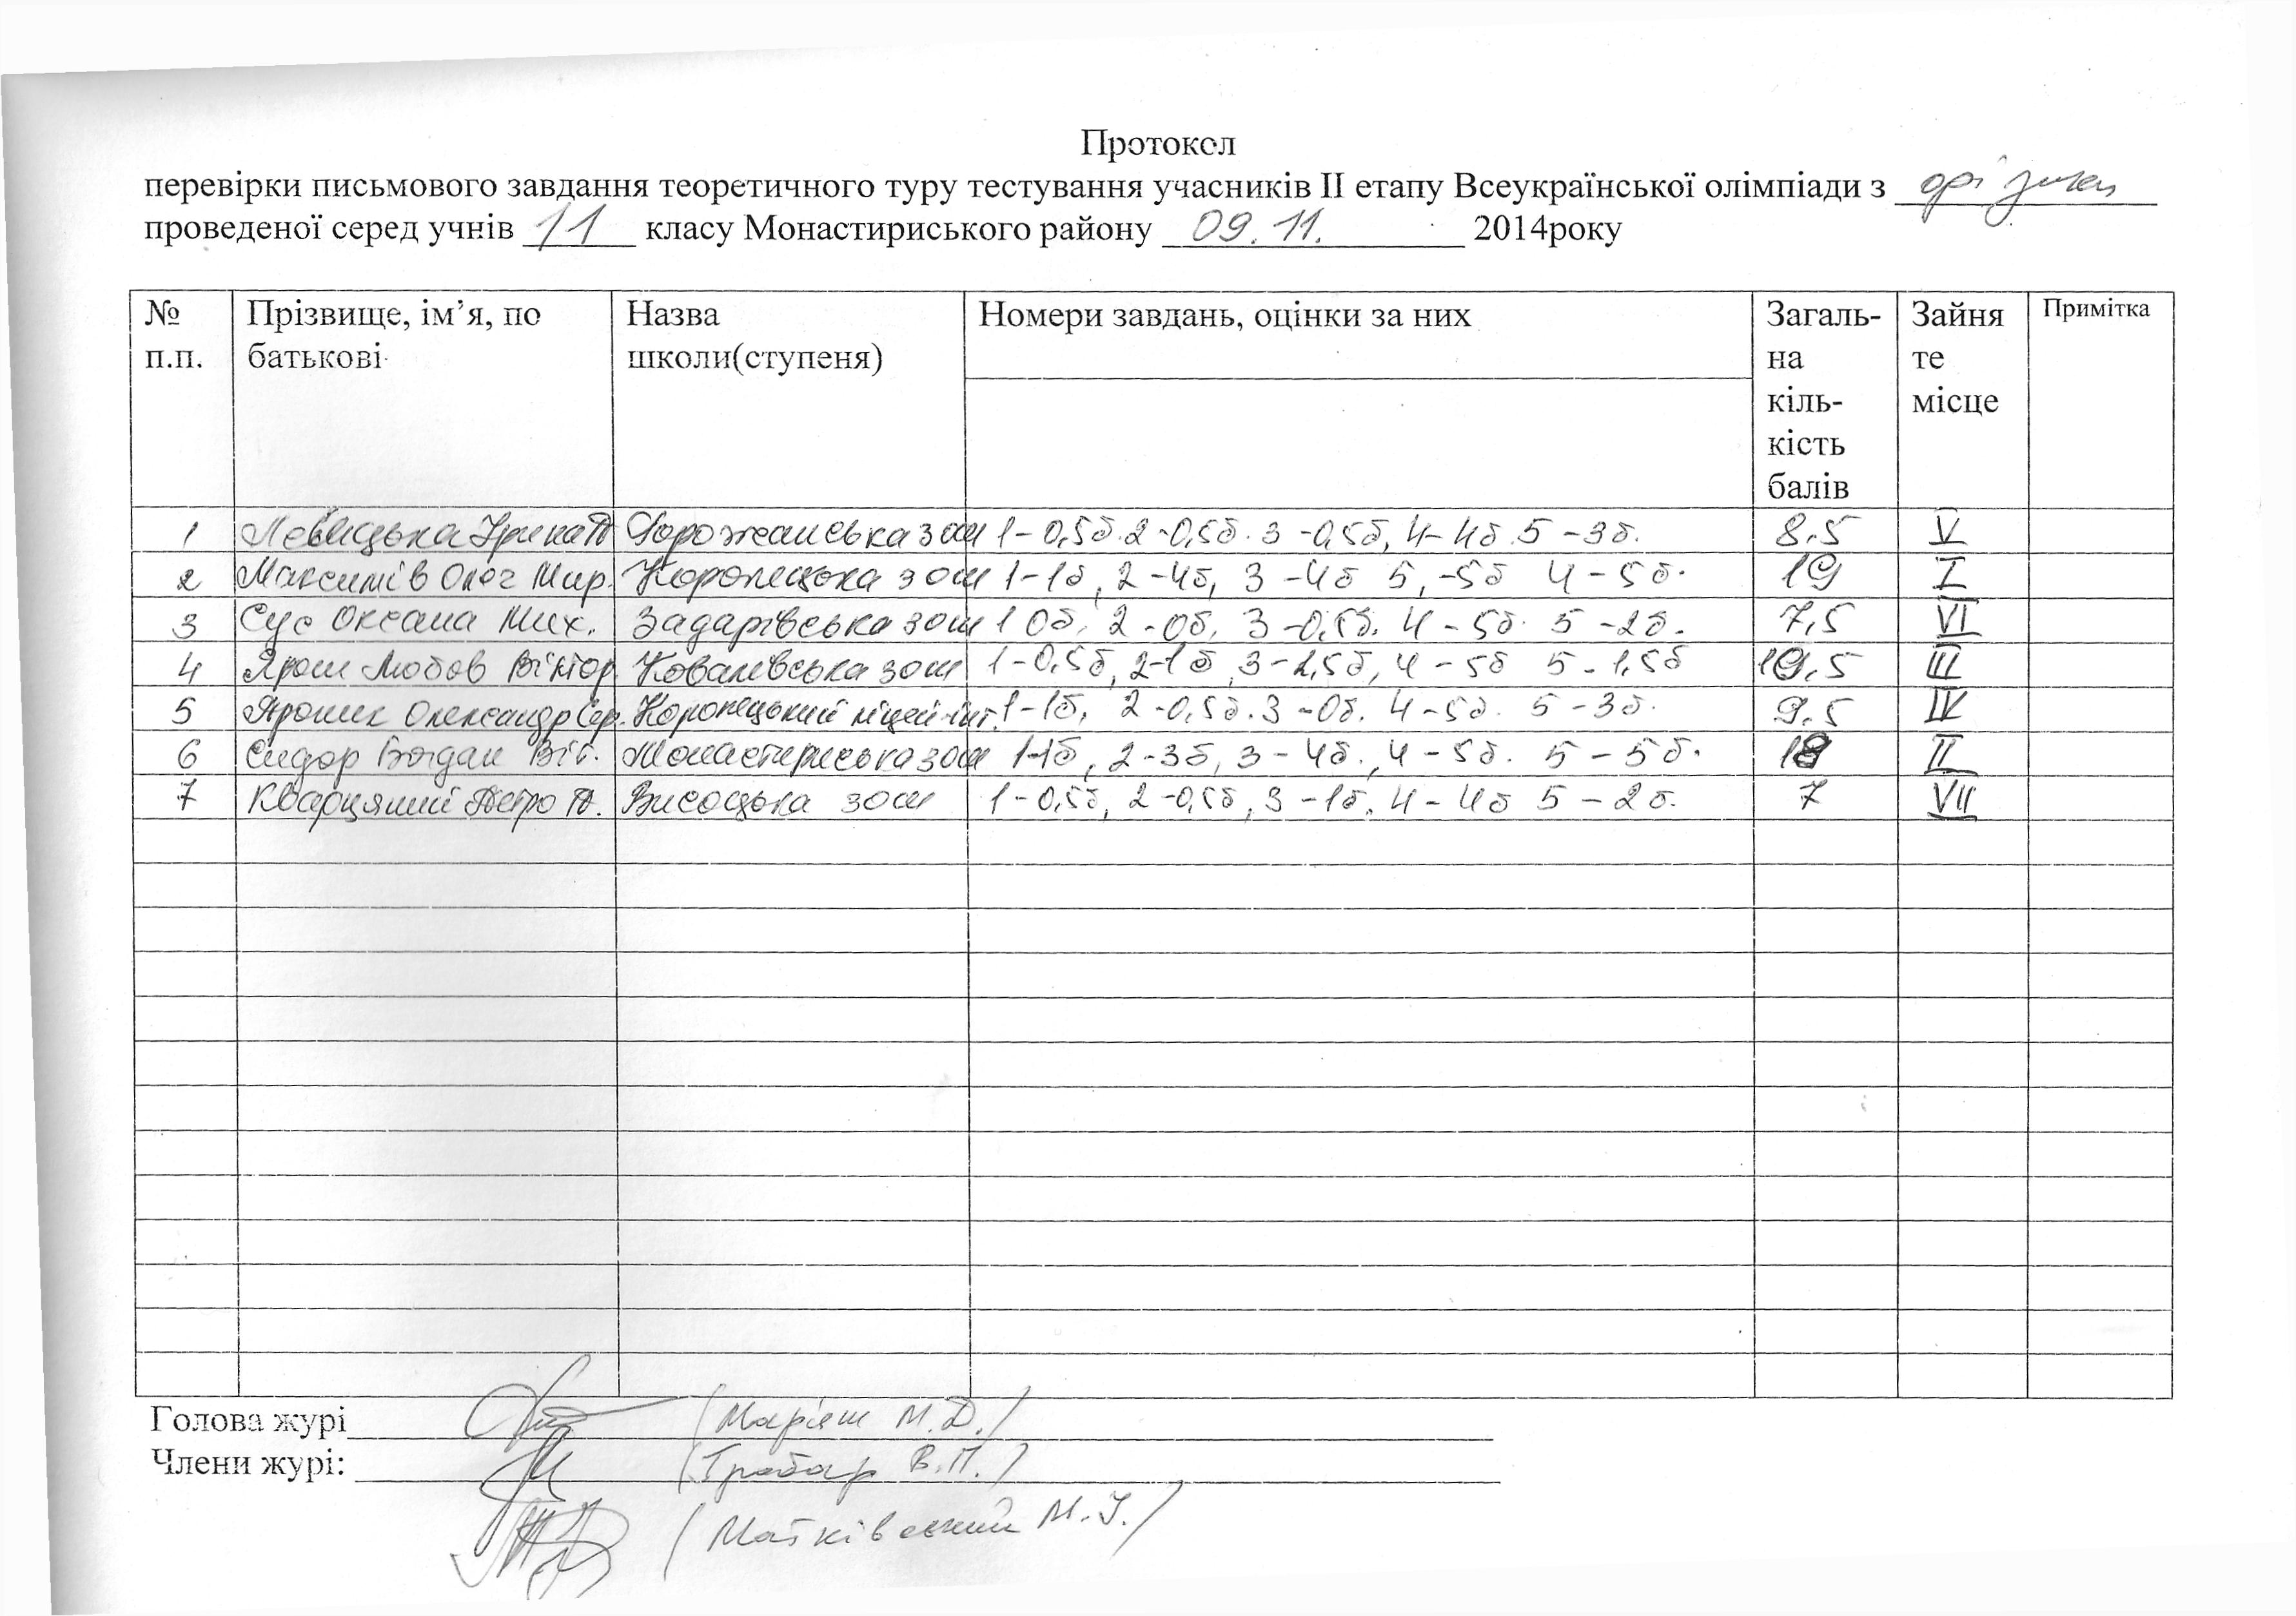 Протокол
перевірки письмового завдання теоретичного туру тестування учасників II етапу Всеукраїнської олімпіади з фізики
проведеної серед учнів 11 класу Монастириського району 09.11. 2014року
№ п.п. Прізвище, ім’я, по батькові Назва школи(ступеня) Номери завдань, оцінки за них Загаль-на кіль-кість балів Зайня те місце Примітка
1 Левицька Ірина П Дорожанська зош 1-0,5б. 2-0,5б. 3-0,5б, 4-4б. 5-3б. 8.5 V
2 Максимів Олег Мир. Коропецька зош 1-1б, 2-4б, 3-4б 5,-5б 4-5б. 19 I
3 Сус Оксана Мих. Задарівська зош 1 0б, 2-0б, 3-0,5б. 4-5б. 5-2б. 7,5 VI
4 Ярош Любов Віктор. Ковалівська зош 1-0,5б, 2-1б, 3-2,5б, 4-5б 5-1,5б 10,5 III
5 Ярошик Олександр Сер. Коропецький ліцей-інт. 1-1б, 2-0,5б. 3-0б. 4-5б. 5-3б. 9.5 IV
6 Сидор Богдан Віт. Монастириська зош 1-1б, 2-3б, 3-4б., 4-5б. 5-5б. 18 II
7 Кварцяний Петро П. Висоцька зош 1-0,5б, 2-0,5б, 3-1б. 4-4б 5-2б. 7 VII
Голова журі (Маріяш М.Д.)
Члени журі: (Грабар В.П.)
(Матківський М.І.)